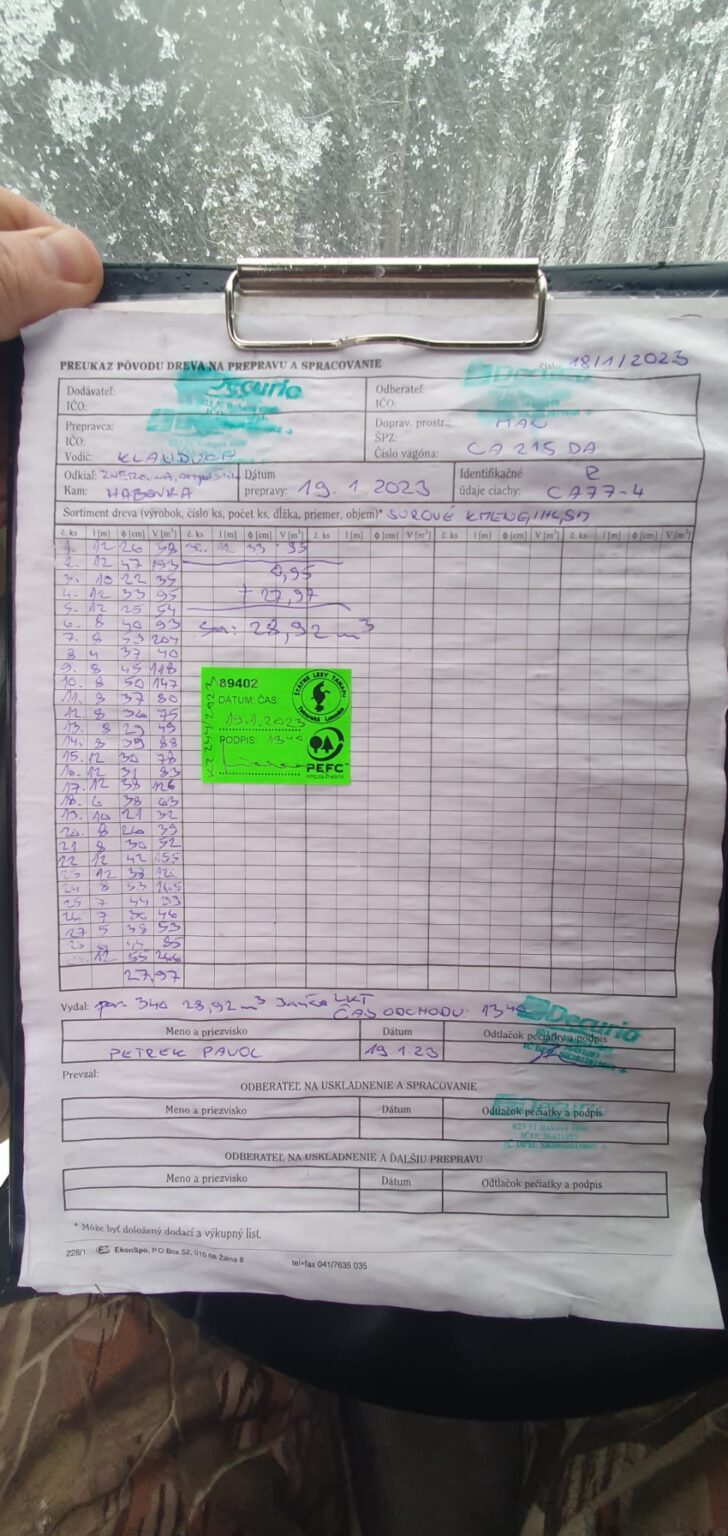 PREUKAZ PÔVODU DREVA NA PREPRAVU A SPRACOVANIE
číslo: 18/1/2023
Dodávateľ:
IČO:
Decurio
Odberateľ:
IČO:
Decurio
Prepravca:
IČO:
Vodič:
Doprav. prostr.: MAN
ŠPZ:
Číslo vagóna: CA 215 DA
Odkiaľ:
Kam: HABOVKA
Dátum
prepravy: 19.1.2023
Identifikačné
údaje ciachy: R
CA77-4
Sortiment dreva (výrobok, číslo ks, počet ks, dĺžka, priemer, objem)* SUROVÉ KMENE,
č. ks l [m] ϕ [cm] V [m³] č. ks l [m] ϕ [cm] V [m³] č. ks l [m] ϕ [cm] V [m³] č. ks l [m] ϕ [cm] V [m³] č. ks l [m] ϕ [cm] V [m³]
1. 12 26 58
2. 12 47 193
3. 10 22 35
4. 12 33 95
5. 12 25 54
6. 8 40 93
7. 8 59 204
8 4 37 40
9. 8 45 118
10. 8 50 147
11. 8 37 80
12. 8 36 75
13. 8 29 49
14. 8 39 88
15. 12 30 77
16. 12 31 83
17. 12 38 126
18. 6 38 63
19. 10 21 32
20. 8 26 39
21 8 30 52
22 12 42 155
23 12 38
24 8 53 165
25 7 44 93
26 7 30 46
27 5 38 53
12 55 266
27,97
0,95
+ 27,97
28,92 m³
89402
DÁTUM: ČAS:
19.1.2023
PODPIS: 1340
ŠTÁTNE LESY TANAPU
Tatranská Lomnica
PEFC
Vydal: por. 340 28,92 m³ LKT
ČAS ODCHODU 1340
Decurio
Meno a priezvisko Dátum Odtlačok pečiatky a podpis
PETREK PAVOL 19.1.23
Prevzal:
ODBERATEĽ NA USKLADNENIE A SPRACOVANIE
Meno a priezvisko Dátum Odtlačok pečiatky a podpis
Decurio
ODBERATEĽ NA USKLADNENIE A ĎALŠIU PREPRAVU
Meno a priezvisko Dátum Odtlačok pečiatky a podpis
* Môže byť doložený dodací a výkupný list.
228/1 EkonSpo, P.O Box 52, 010 08 Žilina 8 tel+fax 041/7635 035